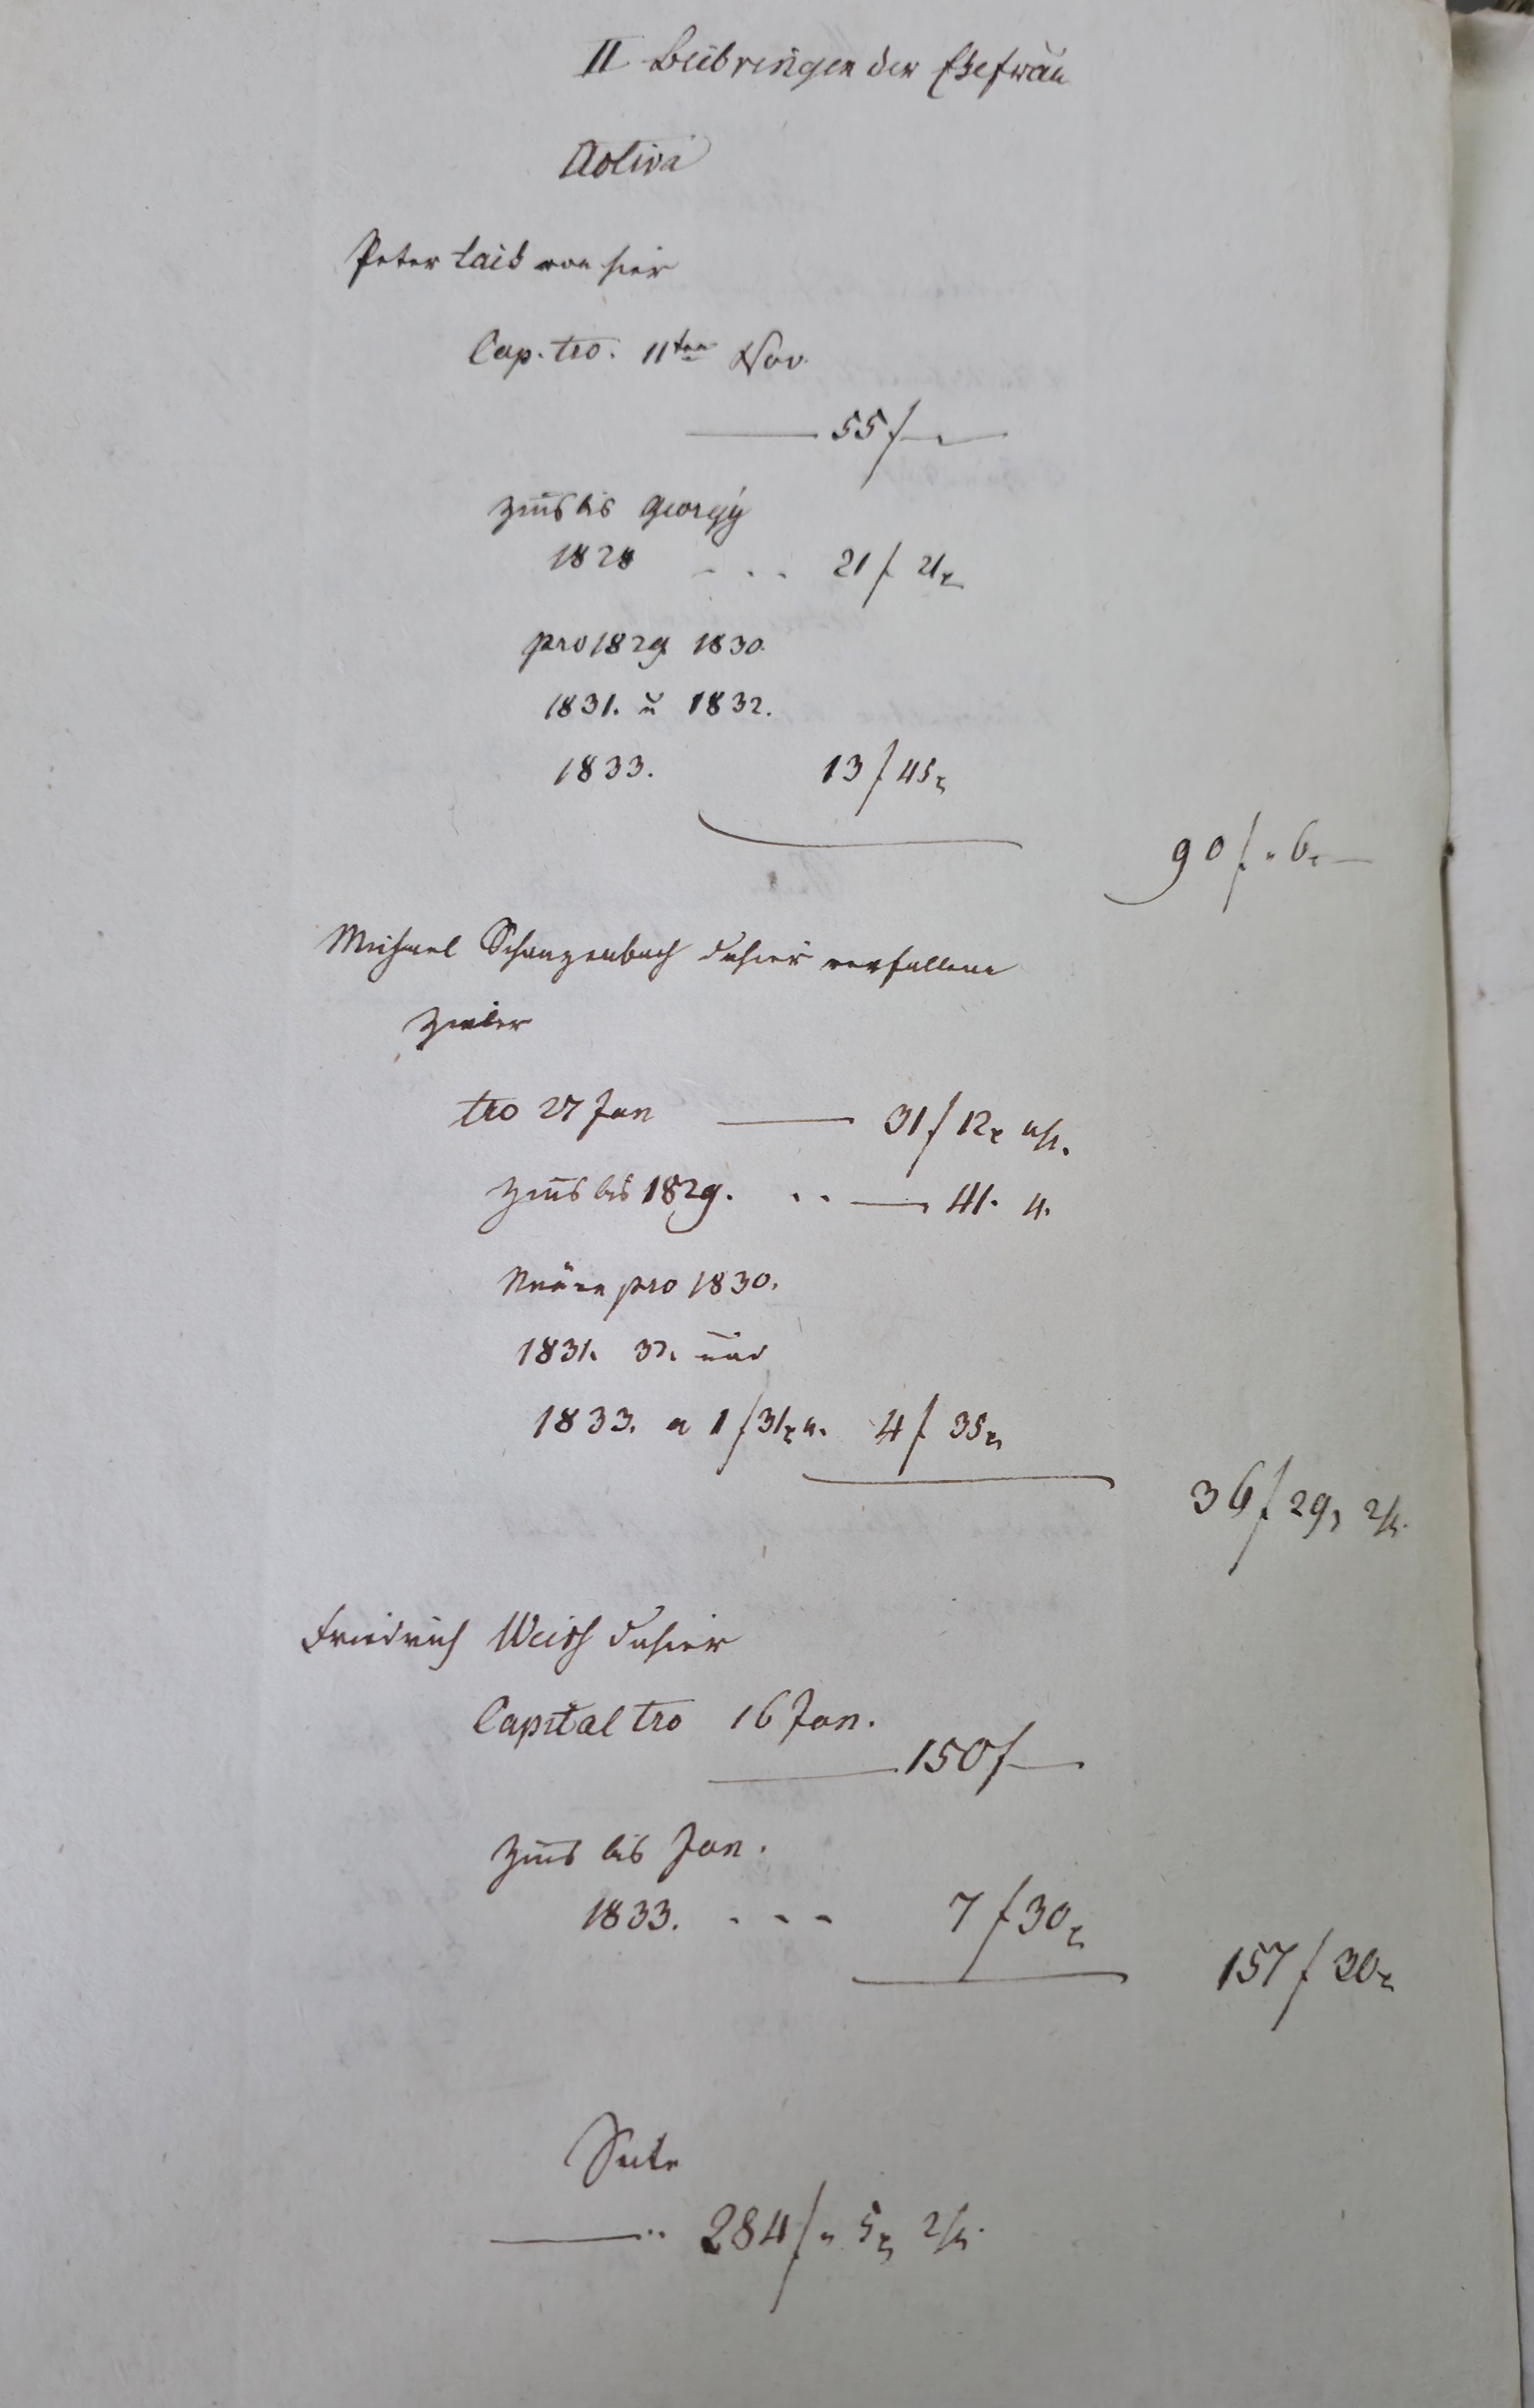 II Beibringen der Ehefrau
Activa
Peter Laib von hier
Cap. tro. 11ten Nov.
55 f
Zins bis Georgÿ
1828 . . . 21 f 21 x
pro 1829 1830.
1831. u 1832.
1833. 13 f 45 x
90 f " 6 x
Michael Schanzenbach dahier verfallene
Zieler
tro 27 Jan 31 f 12 x 4 h.
Zins bis 1829. . . 41. 4.
Neüere pro 1830.
1831. 32. und
1833. a 1 f 31 x 4. 4 f 35 x
36 f 29 x 2 h.
Friedrich Weish dahier
Capital tro 16 Jan.
150 f
Zins bis Jan.
1833. . . . 7 f 30 x
157 f 30 x
Seite
284 f " 5 x 2 h.